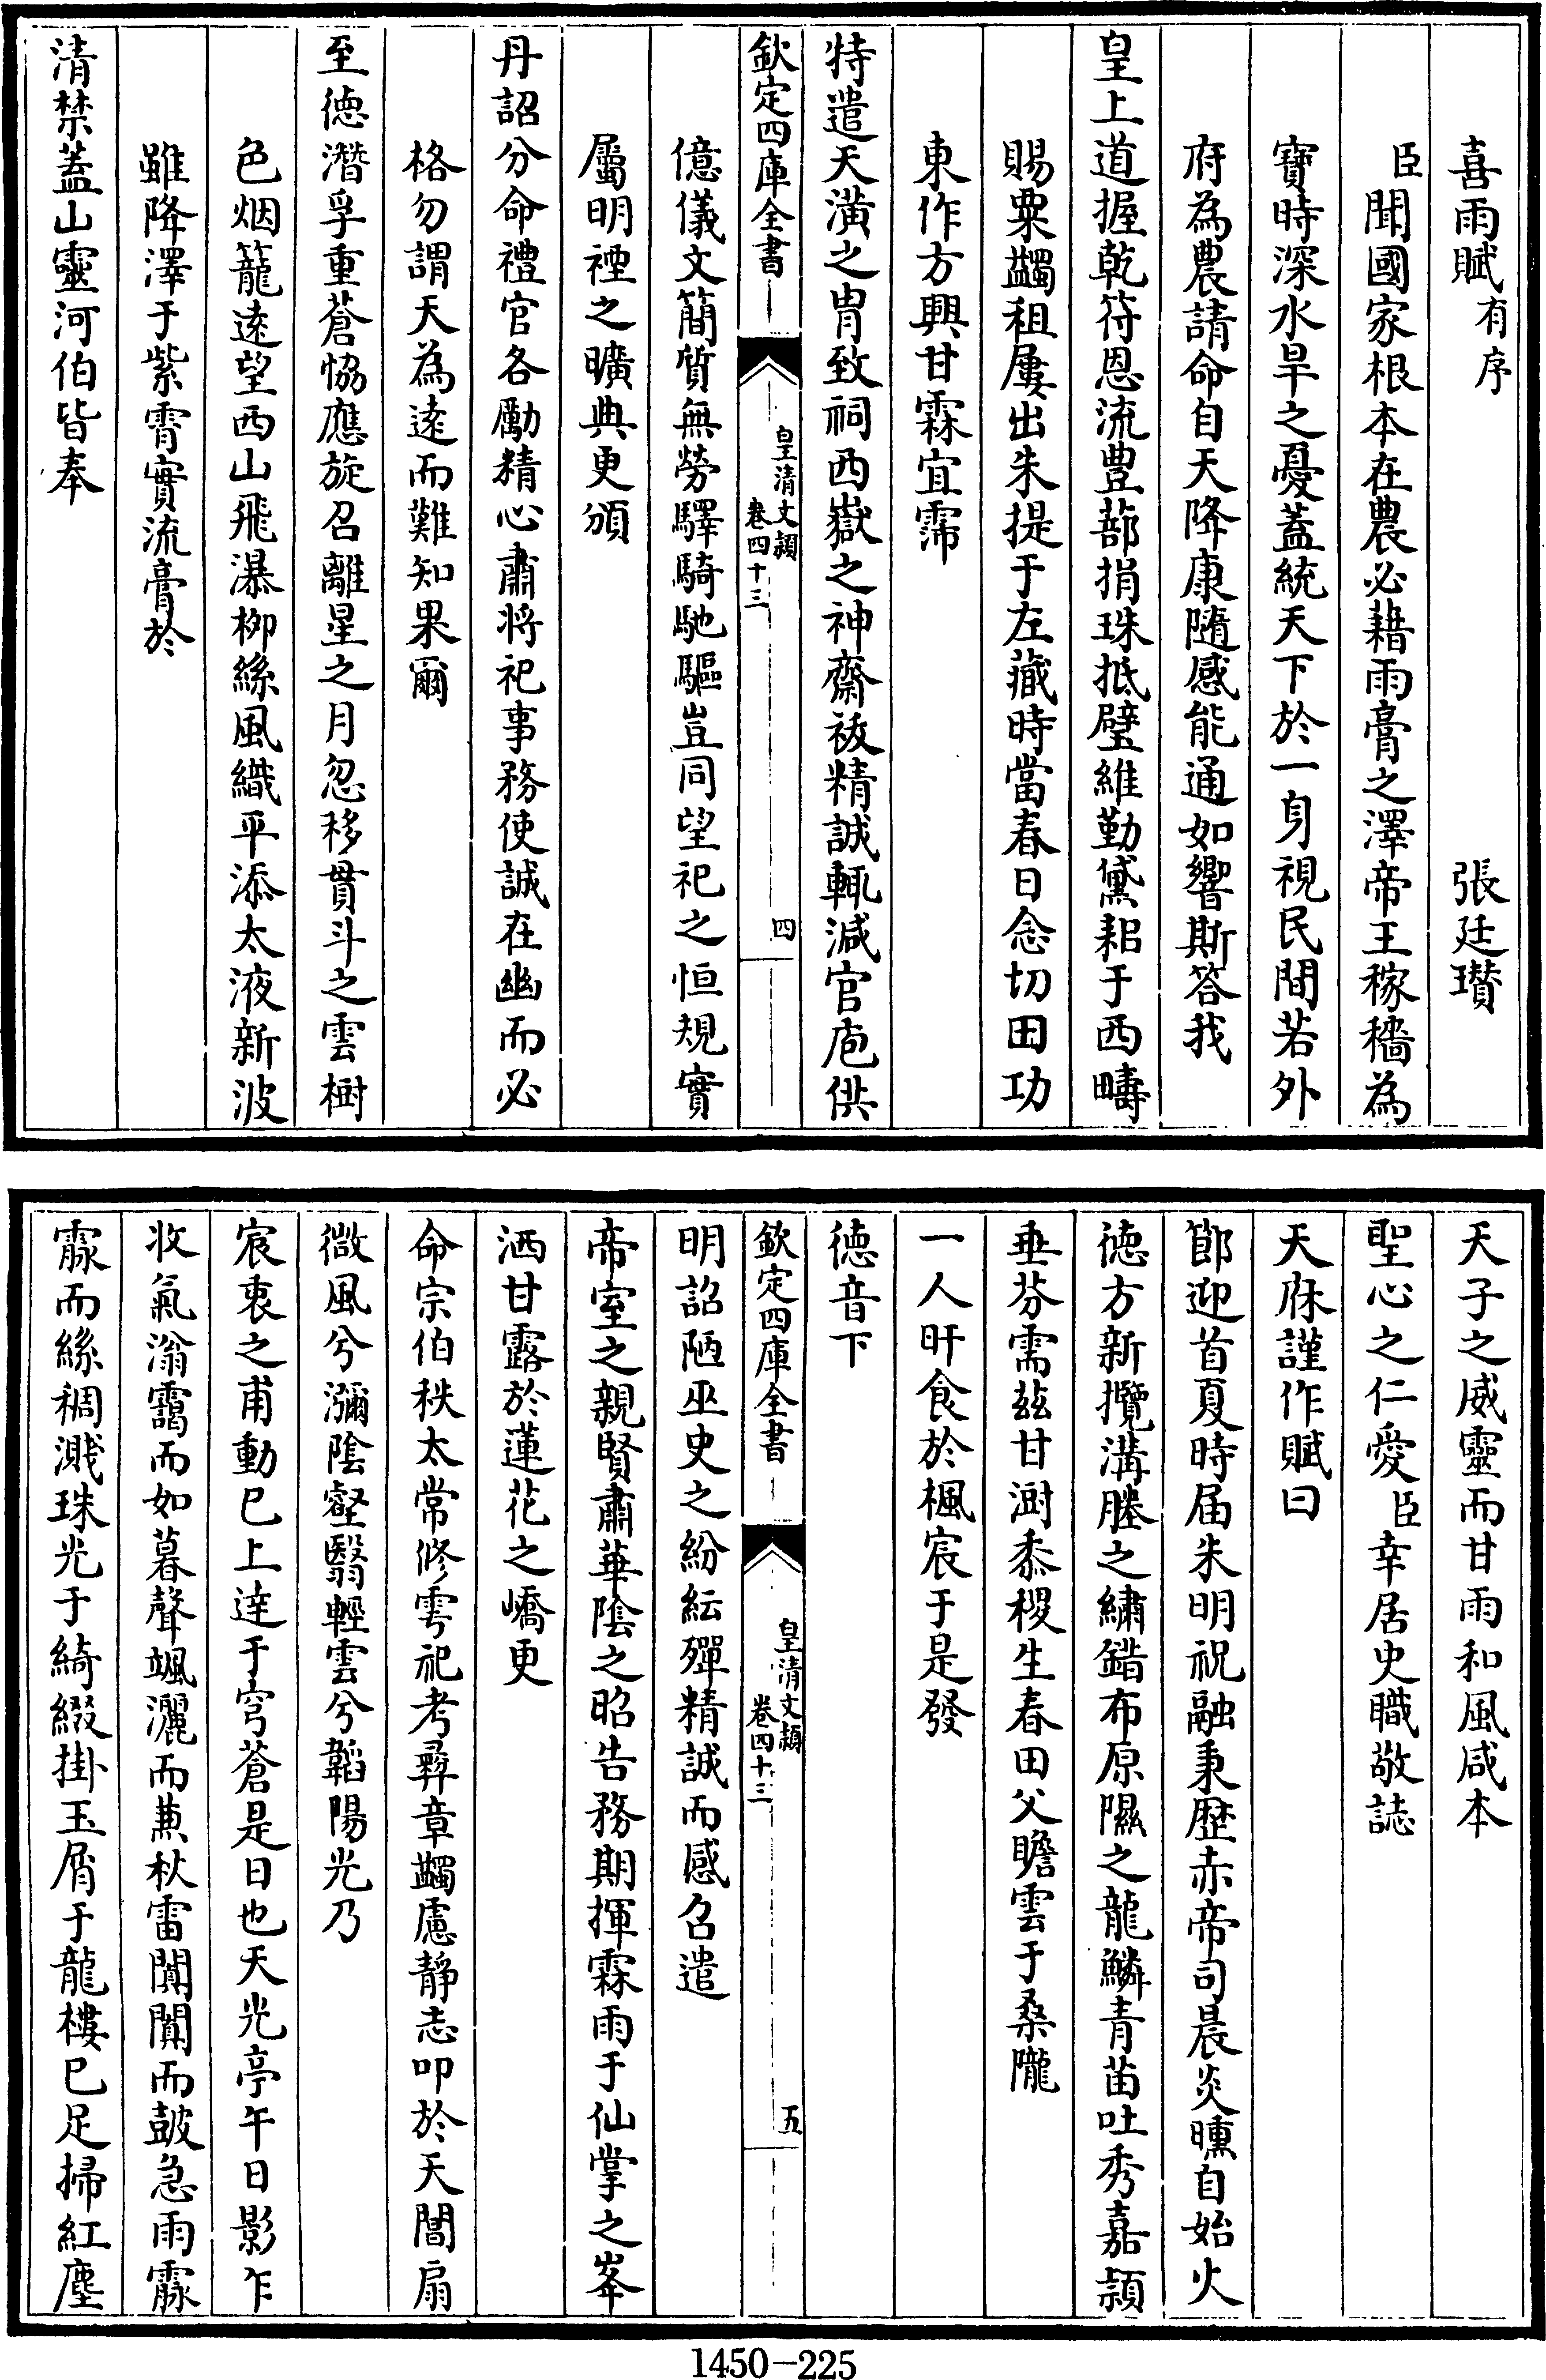 喜雨賦有序 張廷瓚
臣聞國家根本在農必藉雨膏之澤帝王稼穡為
寶時深水旱之憂蓋統天下於一身視民間若外
府為農請命自天降康隨感能通如響斯答我
皇上道握乾符恩流豊蔀捐珠抵璧維勤黛耜于西疇
賜粟蠲租屢出朱提于左藏時當春日念切田功
東作方興甘霖宜霈
特遣天潢之胄致祠西嶽之神齋祓精誠輒減官庖供
欽定四庫全書
皇清文穎
卷四十三
四
億儀文簡質無勞驛騎馳驅豈同望祀之恒規實
屬明禋之曠典更頒
丹詔分命禮官各勵精心肅將祀事務使誠在幽而必
格勿謂天為逺而難知果爾
至徳潛孚重蒼恊應旋召離星之月忽移貫斗之雲樹
色烟籠逺望西山飛瀑栁絲風織平添太液新波
雖降澤于紫霄實流膏於
清禁蓋山靈河伯皆奉
天子之威靈而甘雨和風咸本
聖心之仁愛臣幸居史職敬誌
天庥謹作賦曰
節迎首夏時届朱明祝融秉歴赤帝司晨炎曛自始火
徳方新攬溝塍之繡錯布原隰之龍鱗青苗吐秀嘉頴
垂芬需兹甘澍黍稷生春田父瞻雲于桑隴
一人旰食於楓宸于是發
徳音下
欽定四庫全書
皇清文穎
卷四十三
五
明詔陋巫史之紛紜殫精誠而感召遣
帝室之親賢肅華陰之昭告務期揮霖雨于仙掌之峯
洒甘露於蓮花之嶠更
命宗伯秩太常修雩祀考彞章蠲慮靜志叩於天閶扇
微風兮瀰陰壑翳輕雲兮韜陽光乃
宸衷之甫動已上達于穹蒼是日也天光亭午日影乍
收氣滃靄而如暮聲颯灑而兼秋雷闐闐而鼓急雨霢
霢而絲稠濺珠光于綺綴掛玉屑于龍樓已足掃紅塵
1450—225